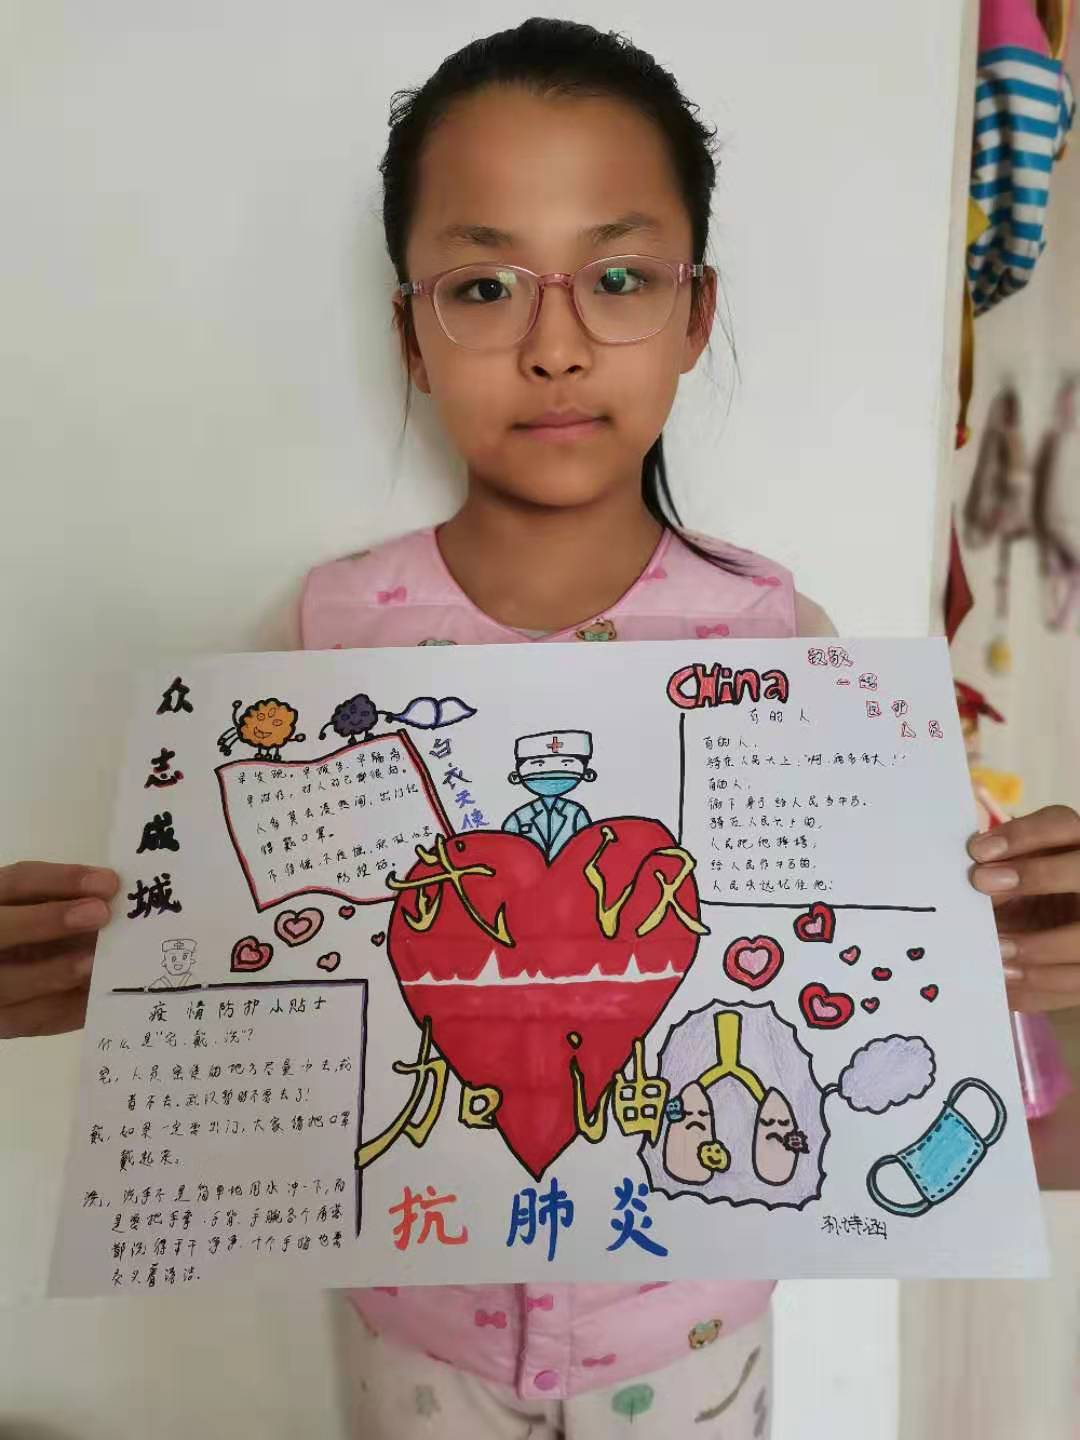 众
志
成
城
早发现。早报告。早隔离。
早治疗。对人对己都很好。
人多莫去凑热闹，出门记
得戴口罩。
不恐慌，不
防控好。
白
衣
天
使
CHina
致敬
一线
医护
人员
有的人
有的人，
骑在人民头上："啊，我多伟大！"
有的人，
俯下身子给人民当牛马。
骑在人民头上的，
人民把他摔垮；
给人民作牛马的，
人民永远记住他！
武汉
加油
疫情防护小贴士
什么是"宅、戴、洗"？
宅，人员密集的地方尽量少去，或
者不去。武汉暂时不要去了！
戴，如果一定要出门，大家得把口罩
戴起来。
洗，洗手不是简单地用水冲一下，而
是要把手掌、手背、手腕各个角落
都洗得干干净净，十个手指也要
交叉着清洁。
抗肺炎
孙诗涵